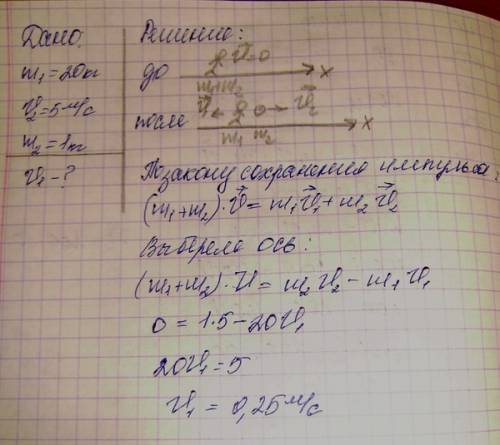 Дано:
m₁=20кг
υ₂=5м/с
m₂=1кг
υ₁-?
Решение:
до υ=0 x
m₁+m₂
после υ₁ υ₂ x
m₁ m₂
По закону сохранения импульса:
(m₁+m₂)·υ=m₁υ₁+m₂υ₂
Выберем ось:
(m₁+m₂)·υ=m₂υ₂-m₁υ₁
0=1·5-20υ₁
20υ₁=5
υ₁=0,25м/с